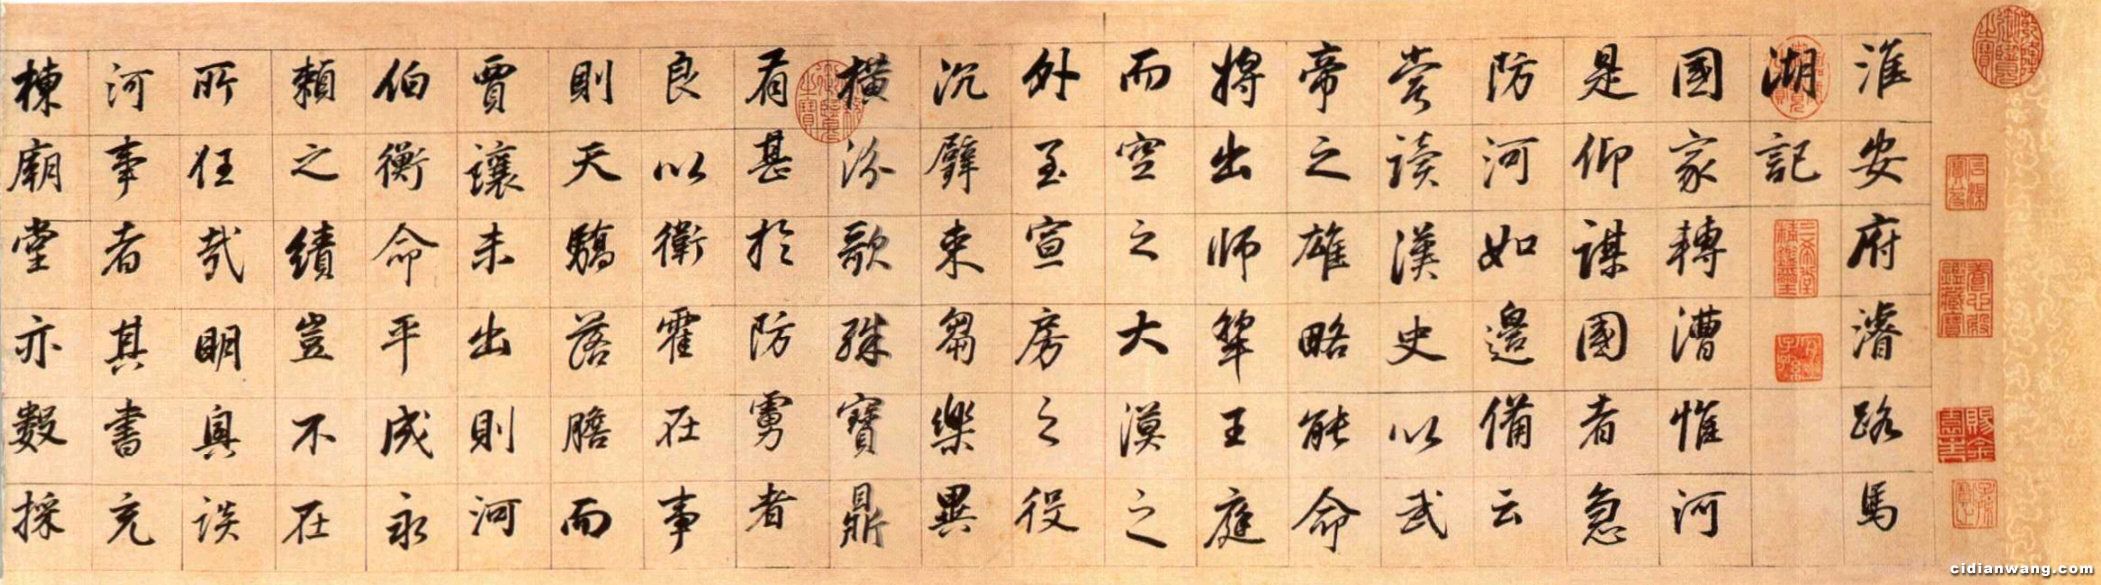 淮安府濬路馬
湖記
國家轉漕惟河
是仰謀國者急
防河如邊備云
嘗讀漢史以武
帝之雄略能命
將出師犂王庭
而空之大漠之
外至宣房之役
沉璧束芻樂異
橫汾歌殊寶鼎
有甚於防虜者
良以衛霍在事
則天驕落膽而
賈讓未出則河
伯衡命平成永
賴之績豈不在
所任哉明興談
河事者其書充
棟廟堂亦數採
石渠寶笈
養心殿鑑藏寶
三希堂精鑑璽
宜子孫
cidianwang.com